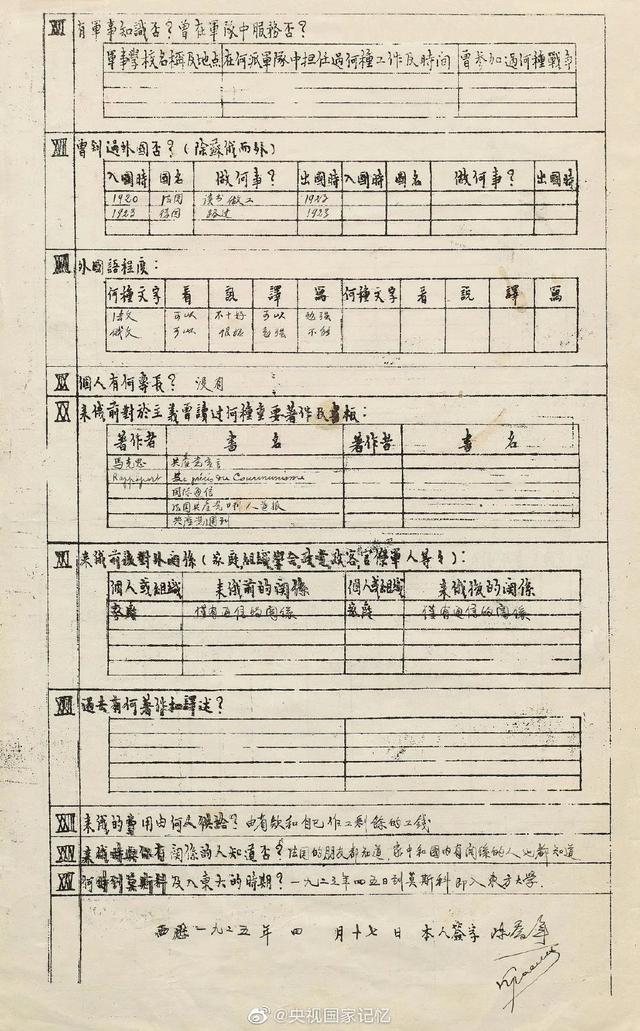 XVI 有軍事知識否？曾在軍隊中服務否？
軍事學校名稱及地点 在何派軍隊中担任過何種工作及時間 曾參加過何種戰爭
XVII 曾到過外國否？(除蘇俄而外)
入國時 國名 做何事？ 出國時 入國時 國名 做何事？ 出國時
1920 法国 读书做工 1923
1923 德国 路过 1923
XVIII 外國語程度：
何種文字 看 説 譯 寫 何種文字 看 説 譯 寫
法文 可以 不十好 可以 勉强
俄文 可以 很好 勉强 不能
個人有何專長？ 没有
XX 来俄前對於主義曾讀过何種重要著作及書報：
著作者 書名 著作者 書名
馬克思 共産党宣言
Rappoport précis du Communisme
国际通信
法国共産党 人道报
共産党週刊
XXI 来俄前後對外関係(家庭組織學会政黨政客官僚軍人等等)：
個人或組織 来俄前的関係 個人或組織 来俄後的関係
家庭 僅有通信的関係 家庭 僅有通信的関係
XXII 過去有何著作和譯述？
XXIII 来俄的費用由何 供給？由 和自己作工剩餘的工錢
XXIV 来俄時 有関係的人知道否？法国的朋友都知道 家中和國内有関係的人也都知道
XXV 何時到莫斯科及入東大的時期？一九二三年四五日到莫斯科即入東方大學
西歷一九二五年 四 月十七日 本人簽字 陈
@央视国家记忆